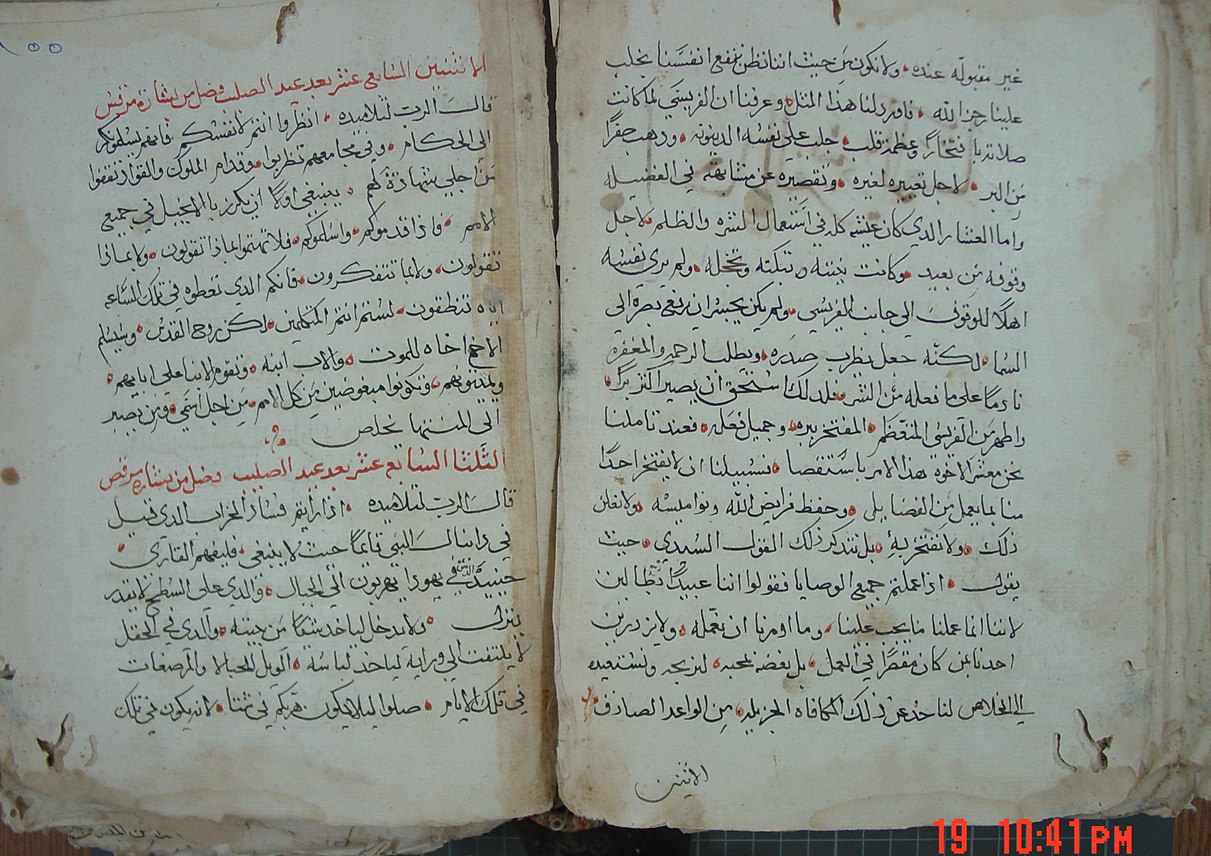 غير مقبوله عنده ولا نكون من حيث اننا نظن ننفع انفسنا نجلب
علينا رجز الله فاورد لنا هذا المثل وعرفنا ان الفريسي لما كانت
صلاته بافتخارًا وعظمة قلب جلب على نفسه الدينونه وذهب صفرًا
من البر لاجل تعييره لغيره وتقصيره عن متشابهته في الفضيله
واما العشار الذي كان عيشه كله في استعمال الشره والظلم لاجل
وقوفه من بعيد وكانت نيته تبكته وتخجله ولم يرى نفسه
اهلًا للوقوف الى جانب الفريسي ولم يكن يجسر ان يرفع بصره الى
السما لكنه جعل يضرب صدره ويطلب الرحمه والمغفره
نادمًا على ما فعله من الشر فلذلك استحق ان يصير اكثر برًا
واطهر من الفريسي المتعظم المفتخر ببره وجميل فعله فعند تاملنا
نحن معشر الاخوة بهذا الامر باستقصا فسبيلنا ان لا يفتخر احدًا
منا بما يعمل من الفضايل وحفظ فرايض الله ونواميسه ولا نظن
ذلك ولا نفتخر به بل نتذكر ذلك القول السيدي حيث
يقول اذا عملتم جميع الوصايا فقولوا اننا عبيدًا بطالين
لاننا انما عملنا ما يجب علينا وما اومرنا ان نعمله ولا يزدرين
احدنا بمن كان مقصرًا في العمل بل يعضه بمحبه ليربحه ونستعيده
الى الخلاص لناخذ عن ذلك المكافاه الجزيله من الواعد الصادق
الاثنين
١٥٥
الاثنين السابع عشر بعد عيد الصليب فصل من بشارة مرقس
قال الرب لتلاميذه انظروا انتم لانفسكم فانهم يسلمونكم
الى الحكام وفي مجامعهم تضربوا وقدام الملوك والقواد تقفوا
من اجلي شهادة لهم ينبغي اولًا ان يكرز بالانجيل في جميع
الامم فاذا قدموكم واسلموكم فلا تهتموا بماذا تقولون ولا بماذا
تقولون ولا بما تتفكرون فانكم الذي تعطوه في تلك الساعه
اياه تنطقون لستم انتم المتكلمين لكن روح القدس وسيسلم
الاخ اخاه للموت والاب ابنه وتقوم الابنا على ابايهم
ويميتونهم وتكونوا مبغوضين من كل الامم من اجل اسمي ومن يصبر
الى المنتها يخلص
الثلثا السابع عشر بعد عيد الصليب فصل من بشارة مرقص
قال الرب لتلاميذه اذا رأيتم فساد الخراب الذي قيل
في دانيال النبي قايمًا حيث لا ينبغي فليفهم القاري
حينيذ الذين في يهودا يهربون الى الجبال والذي على السطح لا يقدر
ينزل ولا يدخل لياخذ شيًا من بيته والذي في الحقل
لا يلتفت الى ورايه لياخذ لباسه الويل للحبالا والمرضعات
في تلك الايام صلوا ليلا يكون هربكم في شتا لانه يكون في تلك